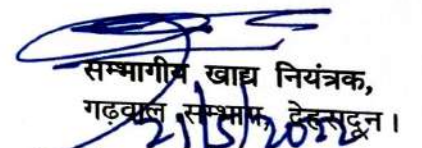 सम्भागीय खाद्य नियंत्रक,
गढ़वाल सम्भाग, देहरादून।
21/5/2022